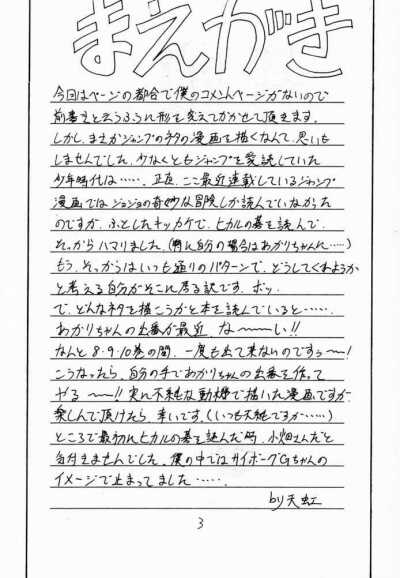 まえがき
今回はページの都合で僕のコメントページがないので
前書きと云うふうに形を変えてかかせて頂きます。
しかし、まさかジャンプのネタの漫画を描くなんて、思いも
しませんでした。少なくともジャンプを愛読していた
少年時代は……。正直、ここ最近連載しているジャンプ
漫画ではジョジョの奇妙な冒険しか読んでいなかった
のですが、ふとしたキッカケで、ヒカルの碁を読んで、
そっからハマりました。(特に自分の場合はあかりちゃんに……)
もう、そっからはいつも通りのパターンで、どうしてくれようか
と考える自分がそこに居る訳です。ポッ。
で、どんなネタを描こうかと本を読んでいると……、
あかりちゃんの出番が最近、な〜〜い!!
なんと8・9・10巻の間、一度も出て来ないのですぅ〜〜!
こうなったら、自分の手であかりちゃんの出番を作って
やる〜〜!!実に不純な動機で描いた漫画ですが
楽しんで頂けたら、幸いです。(いつも不純ですが……)
ところで最初にヒカルの碁を読んだ時、小畑さんだと
気付きませんでした。僕の中ではサイボーグGちゃんの
イメージで止まってました……。
by天虹
3